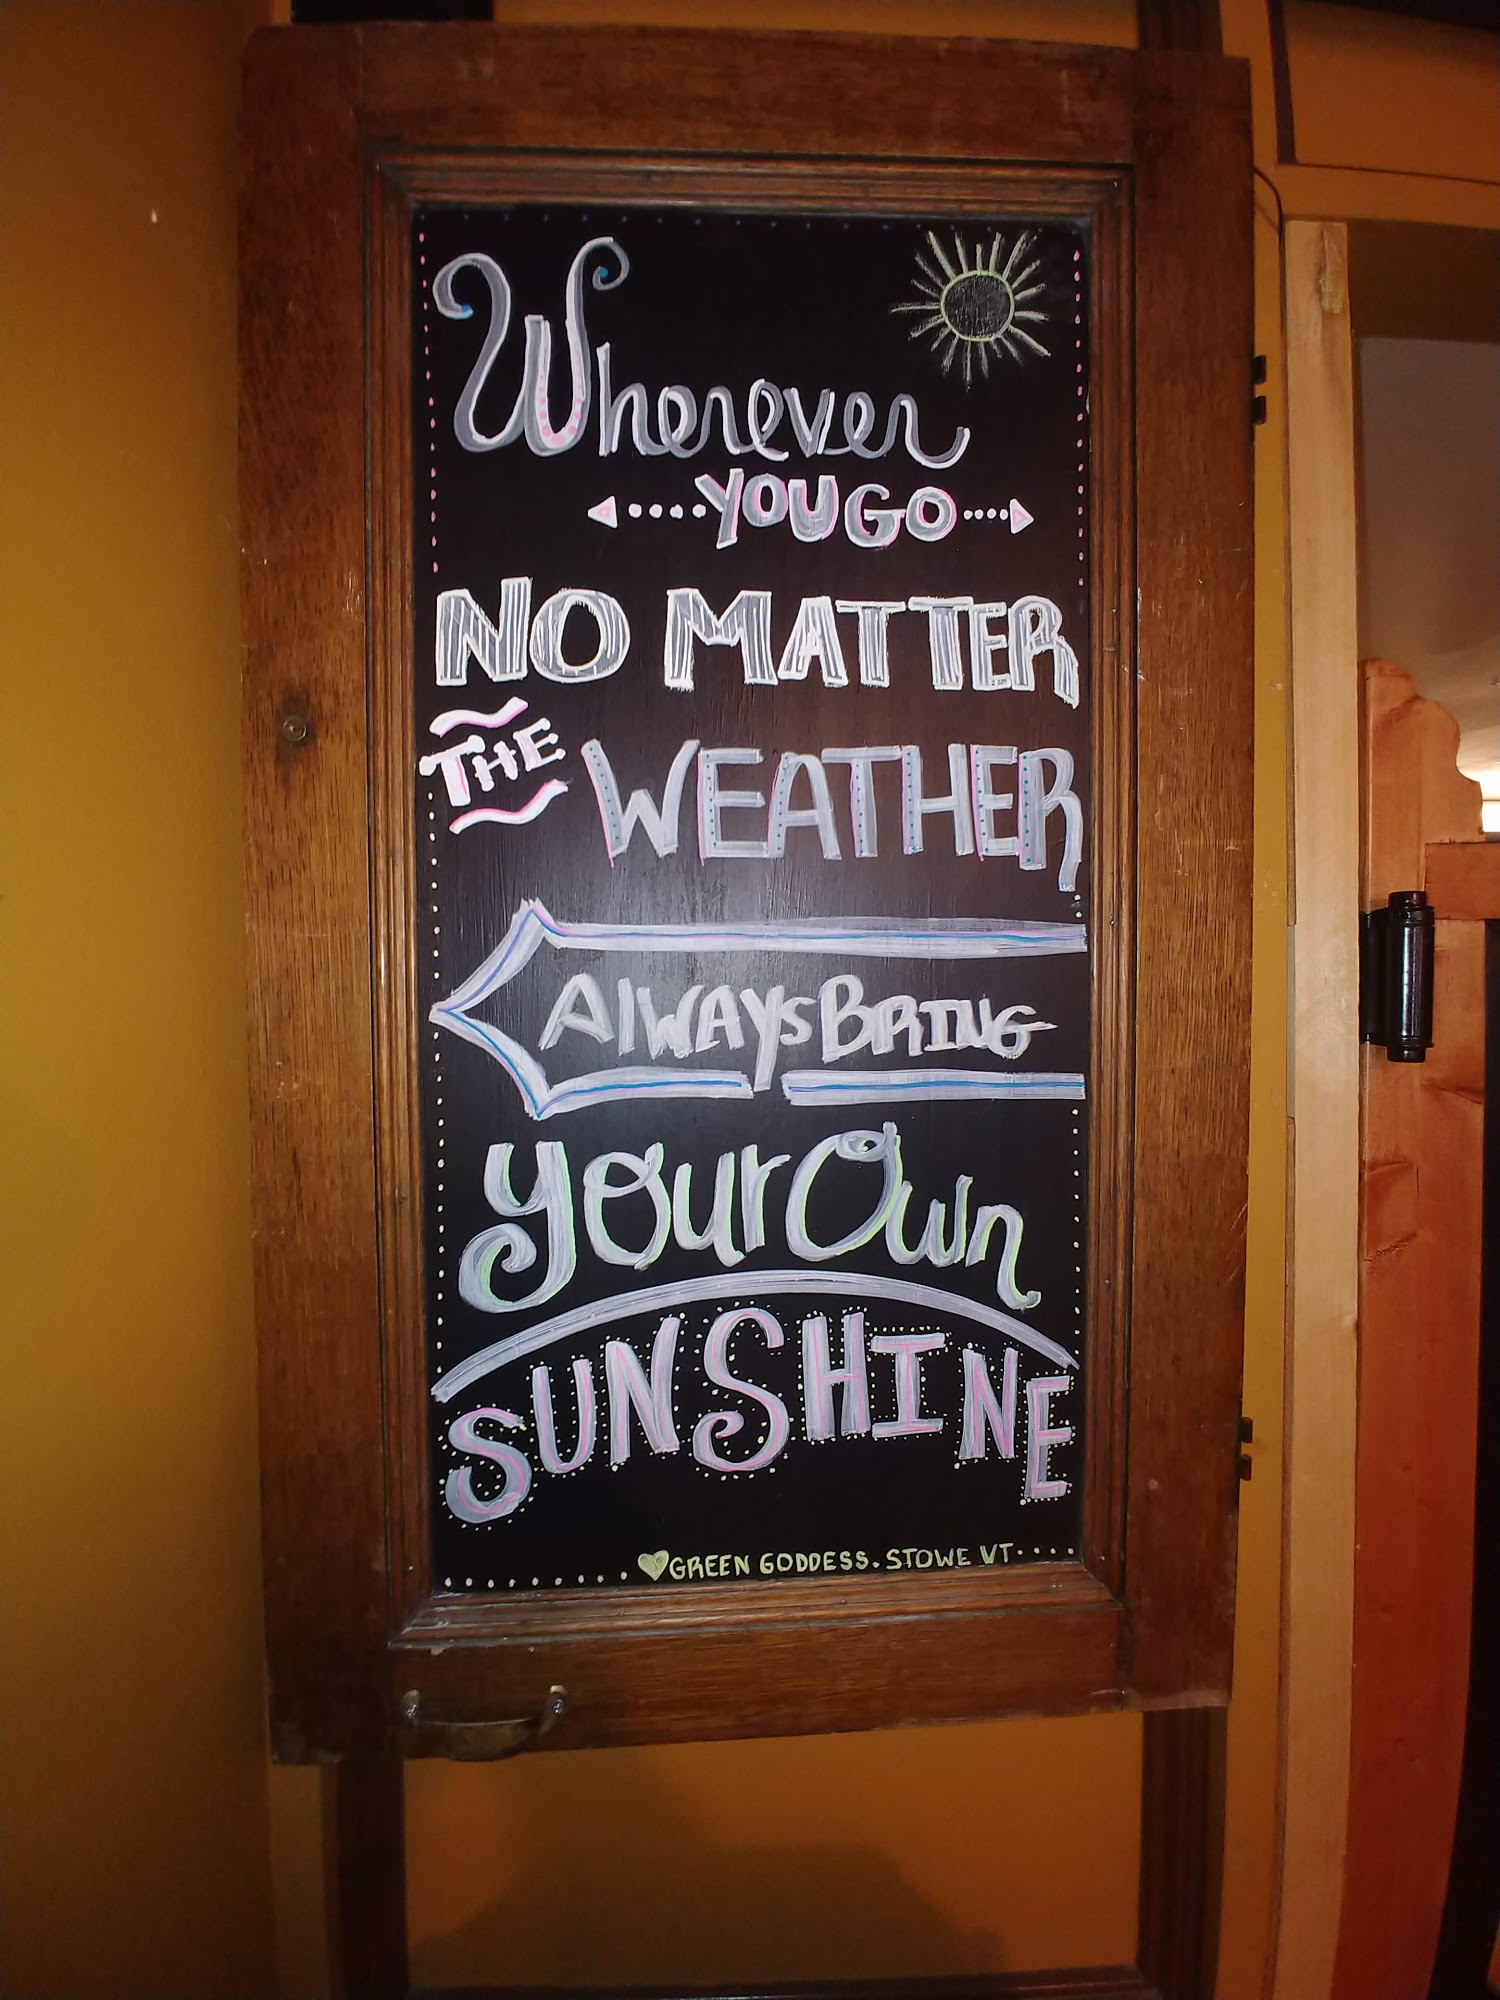 Wherever
YOU GO
NO MATTER
THE WEATHER
AlWAYS BRING
your Own
SUNSHINE
GREEN GODDESS. STOWE VT